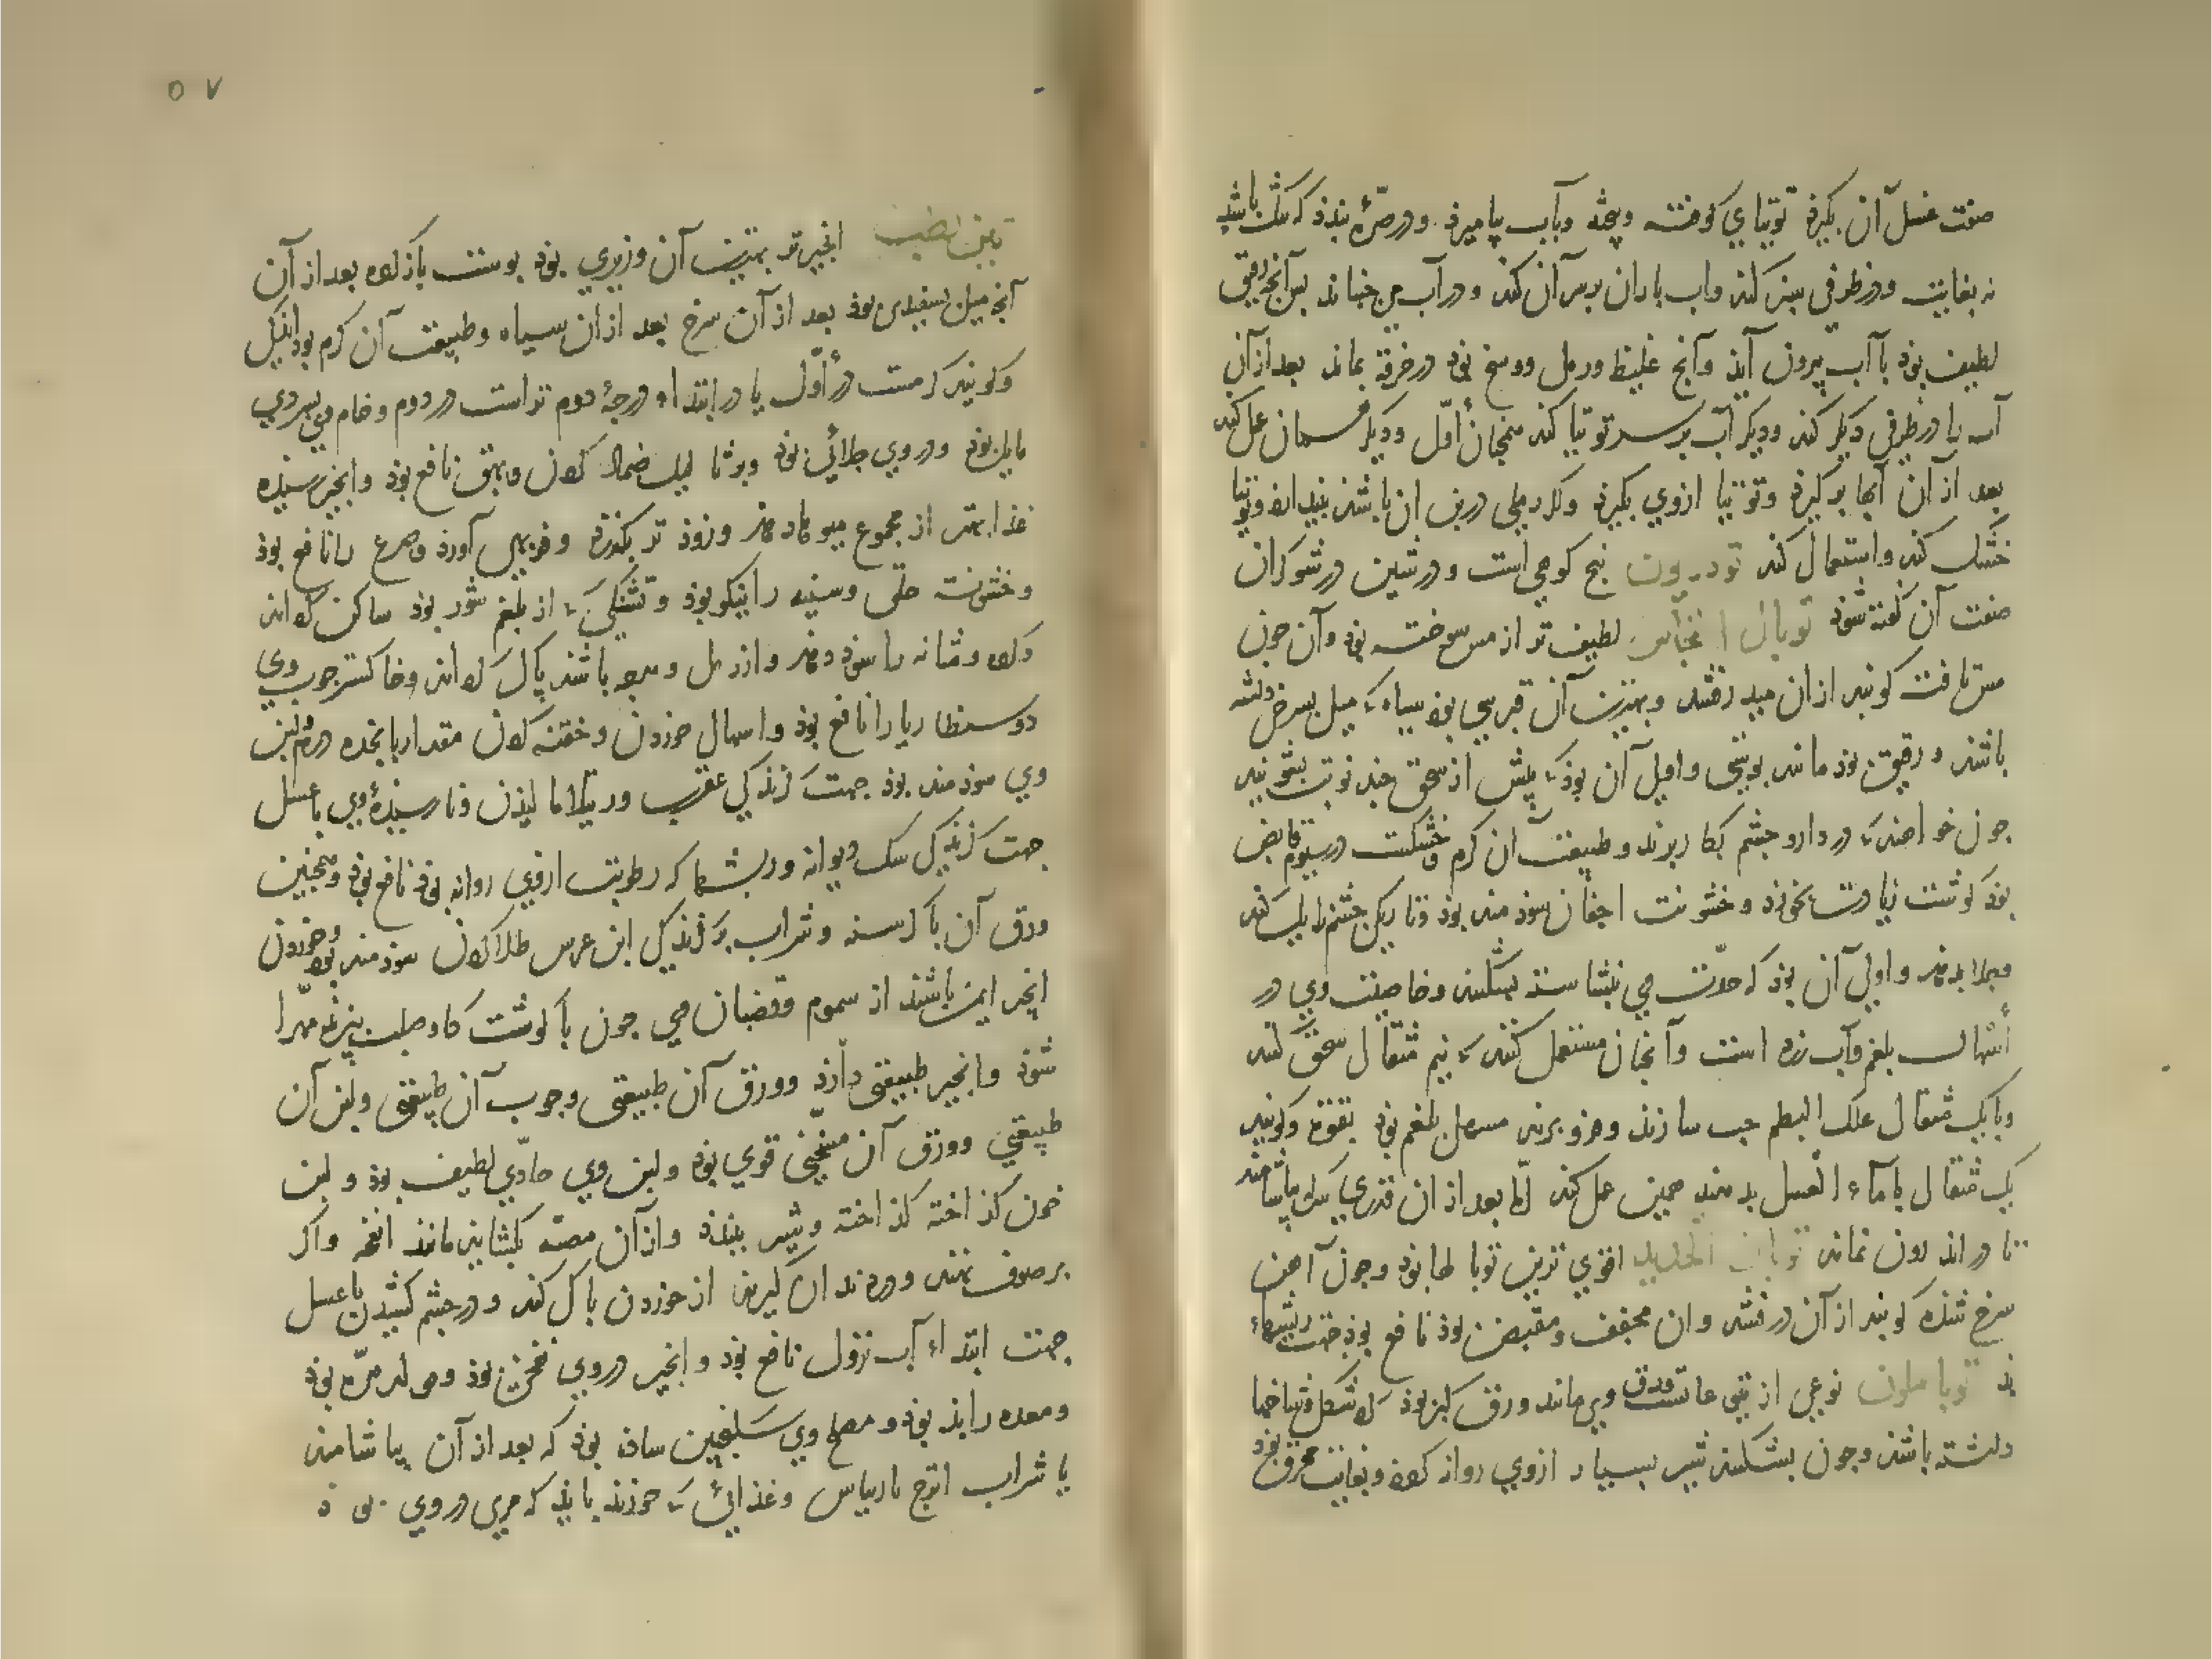 صفت غسل آن بکیرذ توتیای کوفته وبیخته وبآب بیامیزذ ودر صرّهٔ بندذ که تنک باشد
نه بغایت ودر ظرفی سبز کند واب باران بر سر آن کند ودر آب می جنباند بس آنچ رقیق
لطیف بوذ با آب بیرون آیذ وآنچ غلیظ ورمل ووسخ بوذ در خرقه بماند بعد از آن
آب را در ظرفی دیکر کند ودیکر آب بر سر توتیا کند همجنان اوّل ودیکر همان عمل کند
بعد از آن آبها بر کیرذ وتوتیا ازوی بکیرذ واکر رملی در بن آن باشد بیندازد وتوتیا
خشک کند واستعمال کند تودریون بیخ کوهی است ودر شین در شوکران
صفت آن کفته شوذ توبال النحاس لطیف تر از مس سوخته بوذ وآن جون
مس تافته کوبند ازان میدرفشد وبهترین آن قبرسی بوذ سیاه که میل بسرخی داشته
باشد ورقیق بوذ مانند بوستی واولی آن بوذ که بیش از سحق جند نوبت بشویند
جون خواهند که در دارو جشم بکار برند وطبیعت آن کرم وخشکست در سیوم قابض
بوذ کوشت زیادت بخورذ وخشونت اجفان سوذمند بوذ وتاریکی جشم زایل کند
وجلا بدهد واولی آن بوذ که حدّت می نیشا سند بشکنند وخاصیت وی در
اسهال بلغم وآب زرد است وآنجنان مستعمل کنند که نیم مثقال سحق کنند
وبا یک مثقال علک البطم حب سازند وفرو برند مسهل بلغم بوذ بقوّة وکویند
یک مثقال با ماء العسل بدهند همین عمل کند امّا بعد از آن قدری سرکه بیاشامند
تا در اندرون نماند توبال الحدید اقوی ترین توبالها بوذ وجون آهن
سرخ شذه کوبند از آن درفشد وآن مجفف ومقبض بوذ نافع بوذ جهت ریشهاء
بد توباملون نوعی از یتوعاتست وورق وی مانند ورق کبر بوذ که شکل وشاخها
داشته باشد وجون بشکنند شیر بسیار ازوی روانه کردد وبغایت محرق بوذ
۵۷
تین رطب انجیر تر بهترین آن وزیری بوذ بوست باز کرده بعد از آن
آنج میل بسفیدی بوذ بعد از آن سرخ بعد ازان سیاه وطبیعت آن کرم بوذ اندکی
وکویند کرمست در اوّل یا در ابتداء درجهٔ دوم تراست در دوم وخام وی بسردی
مایل بوذ ودر وی جلائی بوذ وبر ثالیل ضماد کردن وبهق نافع بوذ وانجیر رسیذه
غذا بهتر از مجموع میوها دهد وزوذ تر بکذرذ وفربهی آورذ وصرع را نافع بوذ
وخشونت حلق وسینه را نیکو بوذ وتشنکی که از بلغم شور بوذ ساکن کرداند
وکرده ومثانه را سوذ دهد واز رمل وهرجه باشد باک کرداند وخاکستر جوب وی
دوسنطاریا را نافع بوذ واسهال خوردن وحقنه کردن مقدار پانجده درم ولبن
وی سوذمند بوذ جهت کزندکی عقرب ورتیلا مالیذن ونارسیذهٔ وی با عسل
جهت کزندکی سک دیوانه وریشها که رطوبت ازوی روانه بوذ نافع بوذ وهمجنین
ورق آن با کرسنه وشراب بر کزندکی ابن عرس طلا کردن سوذمند بوذ وخوردن
انجیر ایمن باشد از سموم وقضبان وی جون با کوشت کاو صلب بپزند مهرّا
شوذ وانجیر طبیعتی دارد وورق آن طبیعتی وجوب آن طبیعتی ولبن آن
طبیعتی وورق آن مسخنی قوی بوذ ولبن وی حادّی لطیف بوذ ولبن
خون کذاخته کذاخته وشیر ببندذ وازآن معده بکشاید مانند انفحه واکر
بر صوف نهند ودر دندان کیرند از خوردن باک کند ودر جشم کشیدن با عسل
جهت ابتداء آب نزول نافع بوذ وانجیر در وی نفخی بوذ ومولد مرّه بوذ
ومعده را بد بوذ ومصلح وی سکنجبین ساده بوذ که بعد از آن بیاشامند
یا شراب اترج یا ریباس وغذائی که خورند بایذ که مری در وی